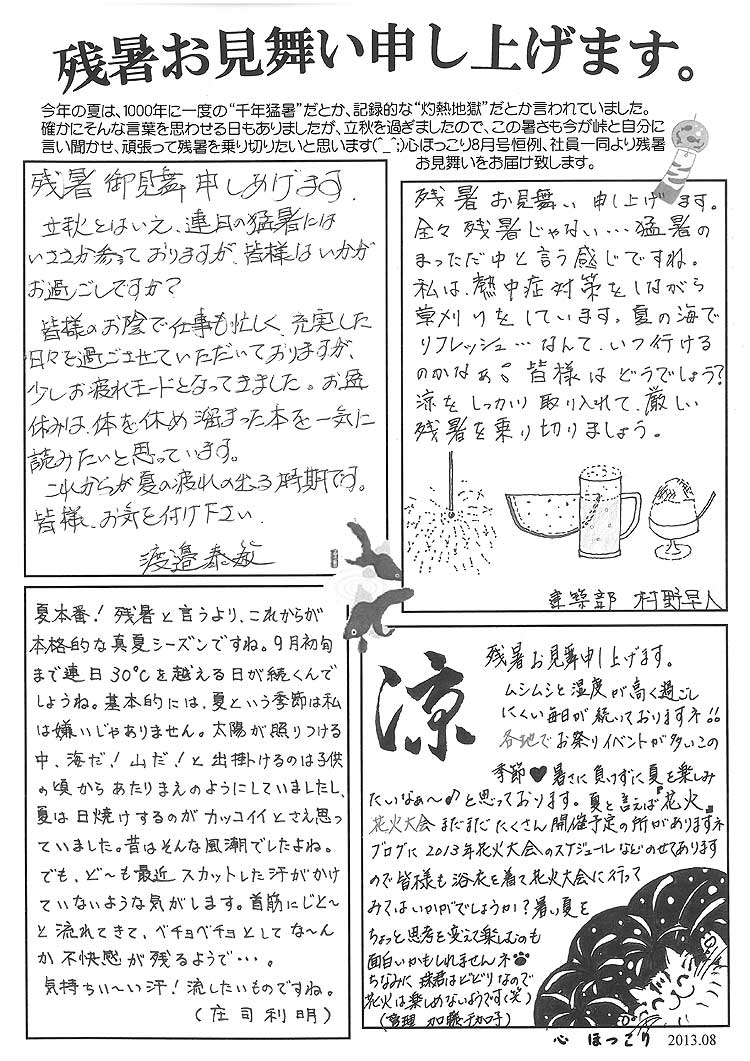 残暑お見舞い申し上げます。
今年の夏は、1000年に一度の“千年猛暑”だとか、記録的な“灼熱地獄”だとか言われていました。
確かにそんな言葉を思わせる日もありましたが、立秋を過ぎましたので、この暑さも今が峠と自分に
言い聞かせ、頑張って残暑を乗り切りたいと思います(^_^;)心ほっこり8月号恒例、社員一同より残暑
お見舞いをお届け致します。
残暑御見舞申しあげます.
立秋とはいえ、連日の猛暑には
いささか参っておりますが、皆様はいかが
お過ごしですか?
皆様のお陰で仕事も忙しく、充実した
日々を過ごさせていただいておりますが、
少しお疲れモードとなってきました。お盆
休みは、体を休め溜まった本を一気に
読みたいと思っています。
これからが夏の疲れの出る時期です。
皆様、お気を付け下さい.
渡邉泰敏
残暑お見舞い申し上げます。
全々残暑じゃない…猛暑の
まっただ中と言う感じですね。
私は、熱中症対策をしながら
草刈りをしています。夏の海で
リフレッシュ…なんて、いつ行ける
のかなぁ。皆様はどうでしょう?
涼をしっかり取り入れて、厳しい
残暑を乗り切りましょう。
建築部 村野早人
夏本番!残暑と言うより、これからが
本格的な真夏シーズンですね。9月初旬
まで連日30℃を越える日が続くんで
しょうね。基本的には、夏という季節は私
は嫌いじゃありません。太陽が照りつける
中、海だ!山だ!と出掛けるのは子供
の頃からあたりまえのようにしていましたし、
夏は日焼けするのがカッコイイとさえ思っ
ていました。昔はそんな風潮でしたよね。
でも、ど〜も最近スカットした汗がかけ
ていないような気がします。首筋にじと〜
と流れてきて、ベチョベチョとしてな〜ん
か不快感が残るようで…。
気持ちい〜い汗!流したいものですね。
(庄司利明)
涼
残暑お見舞申し上げます。
ムシムシと湿度が高く過ごし
にくい毎日が続いておりますネ!!
各地でお祭りイベントが多いこの
季節♥暑さに負けずに夏を楽しみ
たいなぁ〜♪と思っております。夏と言えば『花火』
花火大会まだまだたくさん開催予定の所がありますネ
ブログに2013年花火大会のスケジュールなどのせてあります
ので皆様も浴衣を着て花火大会に行って
みてはいかがでしょうか?暑い夏を
ちょっと思考を変えて楽しむのも
面白いかもしれませんネ
ちなみに珠君はビビリなので
花火は楽しめないようです(笑)
(管理 加藤千加子)
心 ほっこり 2013.08